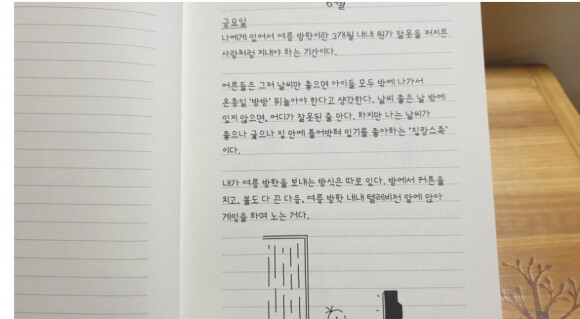 6월
금요일
나에게 있어서 여름 방학이란 3개월 내내 뭔가 잘못을 저지른
사람처럼 지내야 하는 기간이다.
어른들은 그저 날씨만 좋으면 아이들 모두 밖에 나가서
온종일 '방방' 뛰놀아야 한다고 생각한다. 날씨 좋은 날 밖에
있지 않으면, 어디가 잘못된 줄 안다. 하지만 나는 날씨가
좋으나 궂으나 집 안에 틀어박혀 있기를 좋아하는 '집캉스족'
이다.
내가 여름 방학을 보내는 방식은 따로 있다. 방에서 커튼을
치고, 불도 다 끈 다음, 여름 방학 내내 텔레비전 앞에 앉아
게임을 하며 노는 거다.